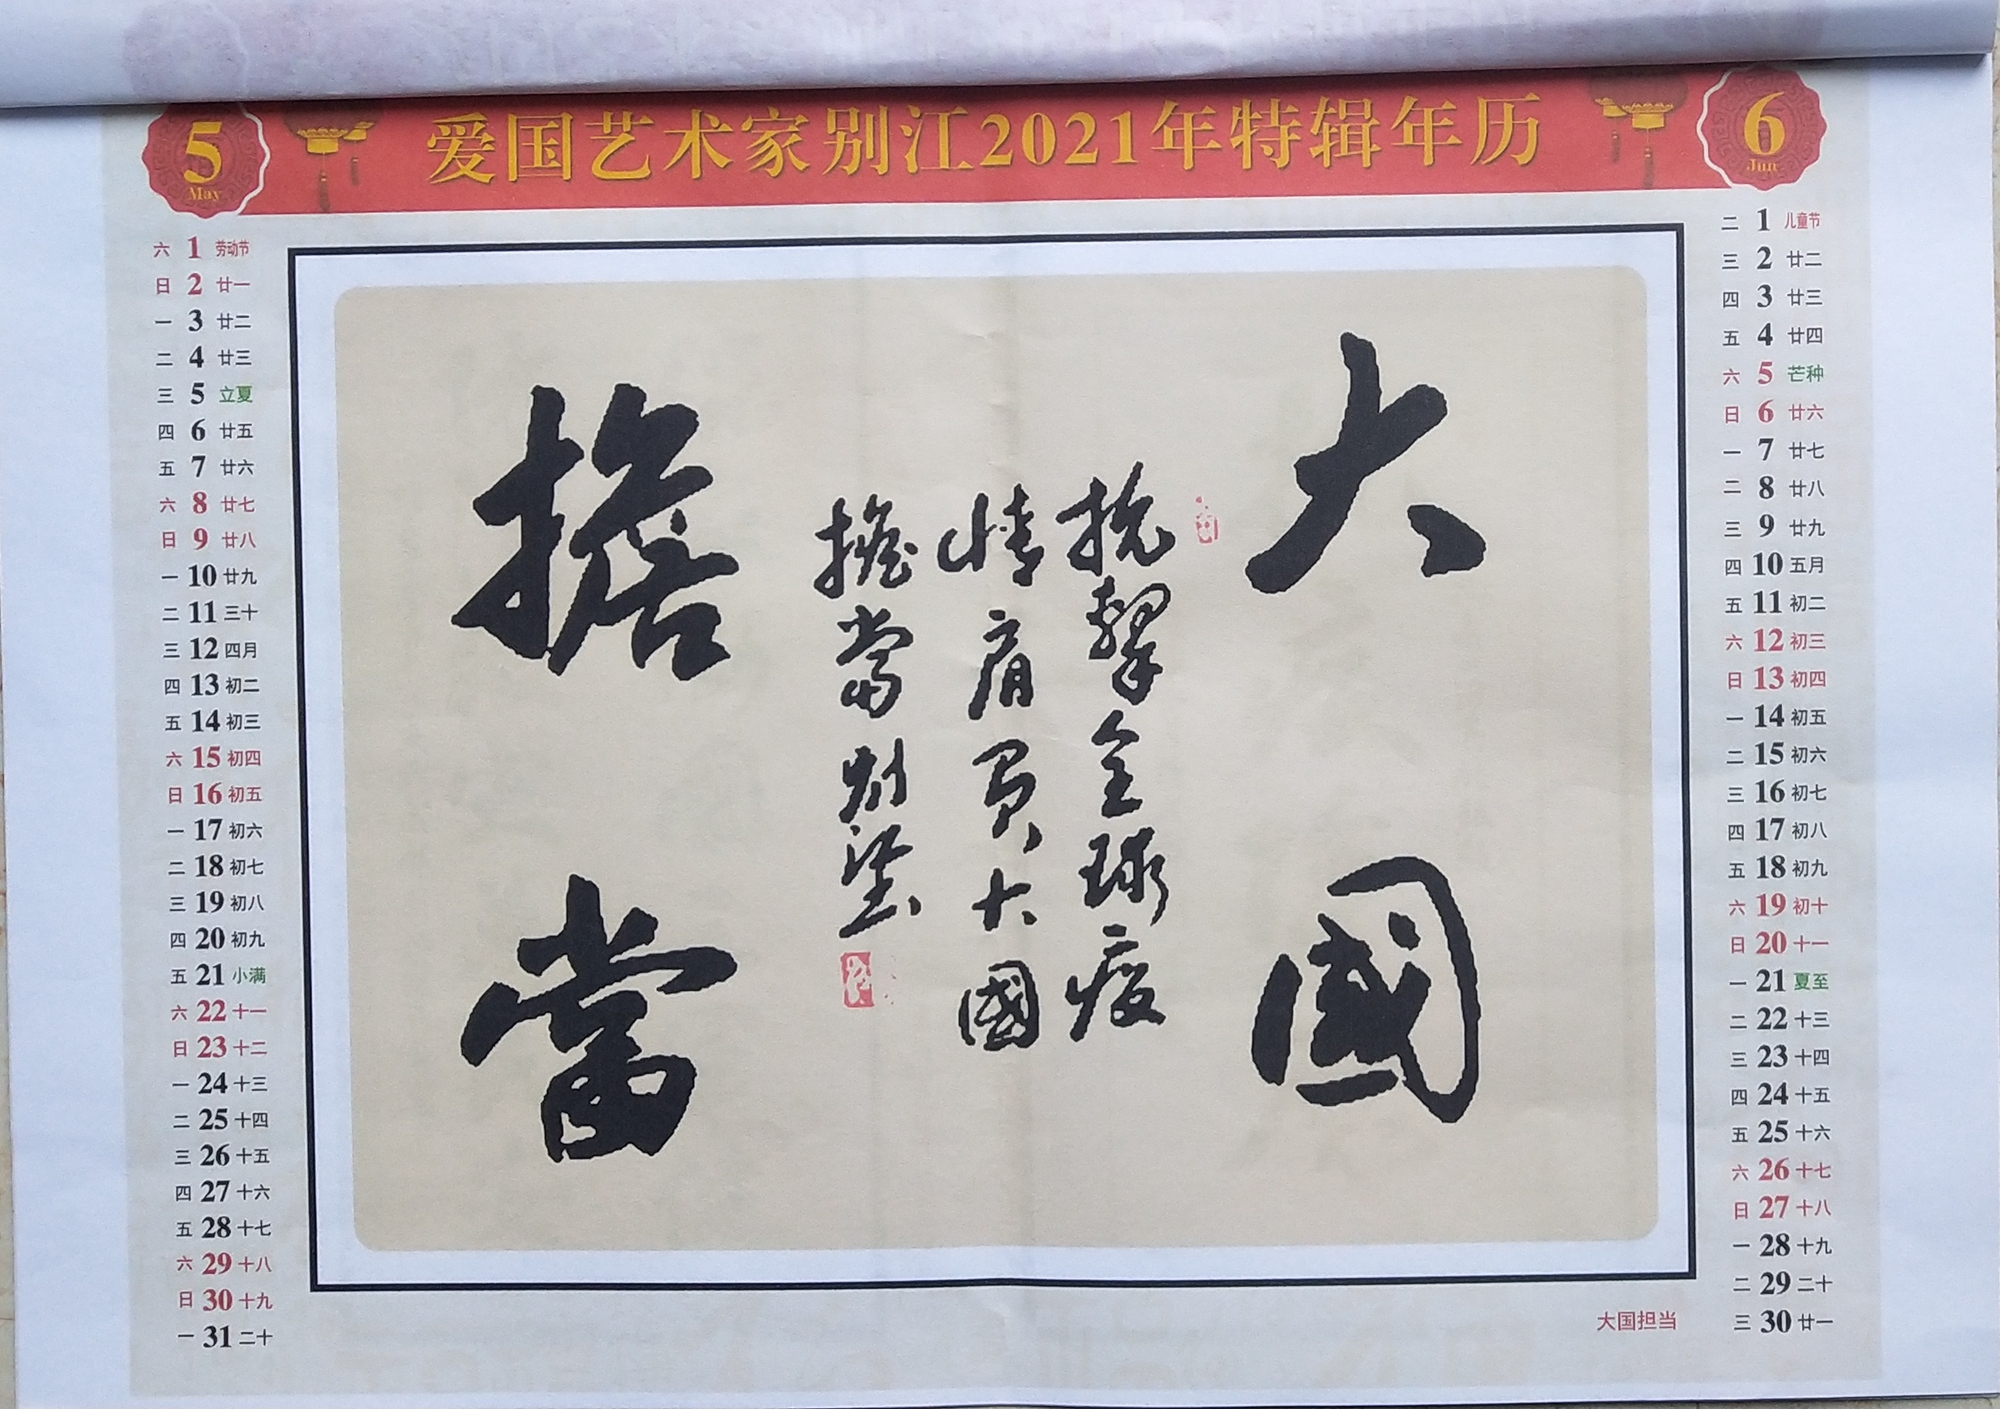 爱国艺术家别江2021年特辑年历
5
May
六 1 劳动节
日 2 廿一
一 3 廿二
二 4 廿三
三 5 立夏
四 6 廿五
五 7 廿六
六 8 廿七
日 9 廿八
一 10 廿九
二 11 三十
三 12 四月
四 13 初二
五 14 初三
六 15 初四
日 16 初五
一 17 初六
二 18 初七
三 19 初八
四 20 初九
五 21 小满
六 22 十一
日 23 十二
一 24 十三
二 25 十四
三 26 十五
四 27 十六
五 28 十七
六 29 十八
日 30 十九
一 31 二十
大國
抗擊全球疫
情肩負大國
擔當别江
擔當
6
Jun
二 1 儿童节
三 2 廿二
四 3 廿三
五 4 廿四
六 5 芒种
日 6 廿六
一 7 廿七
二 8 廿八
三 9 廿九
四 10 五月
五 11 初二
六 12 初三
日 13 初四
一 14 初五
二 15 初六
三 16 初七
四 17 初八
五 18 初九
六 19 初十
日 20 十一
一 21 夏至
二 22 十三
三 23 十四
四 24 十五
五 25 十六
六 26 十七
日 27 十八
一 28 十九
二 29 二十
三 30 廿一
大国担当